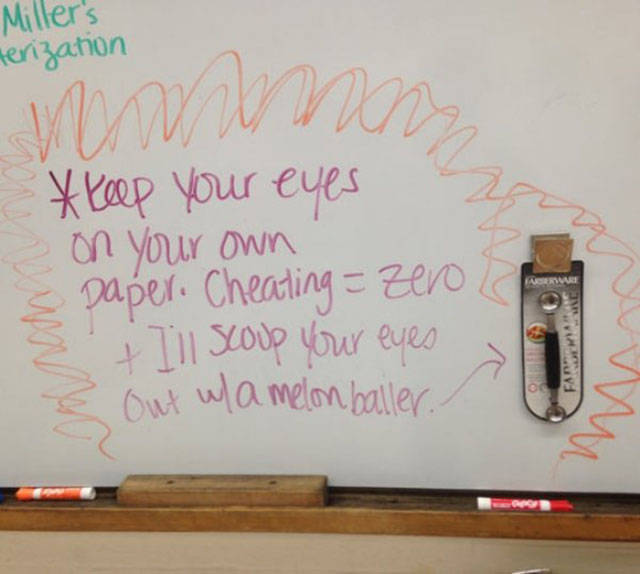 Miller's
terization
*Keep your eyes
on your own
paper. Cheating = zero
+ I'll scoop your eyes
out w/a melon baller.
FARBERWARE
FARBERWARE
EXPO
EXPO